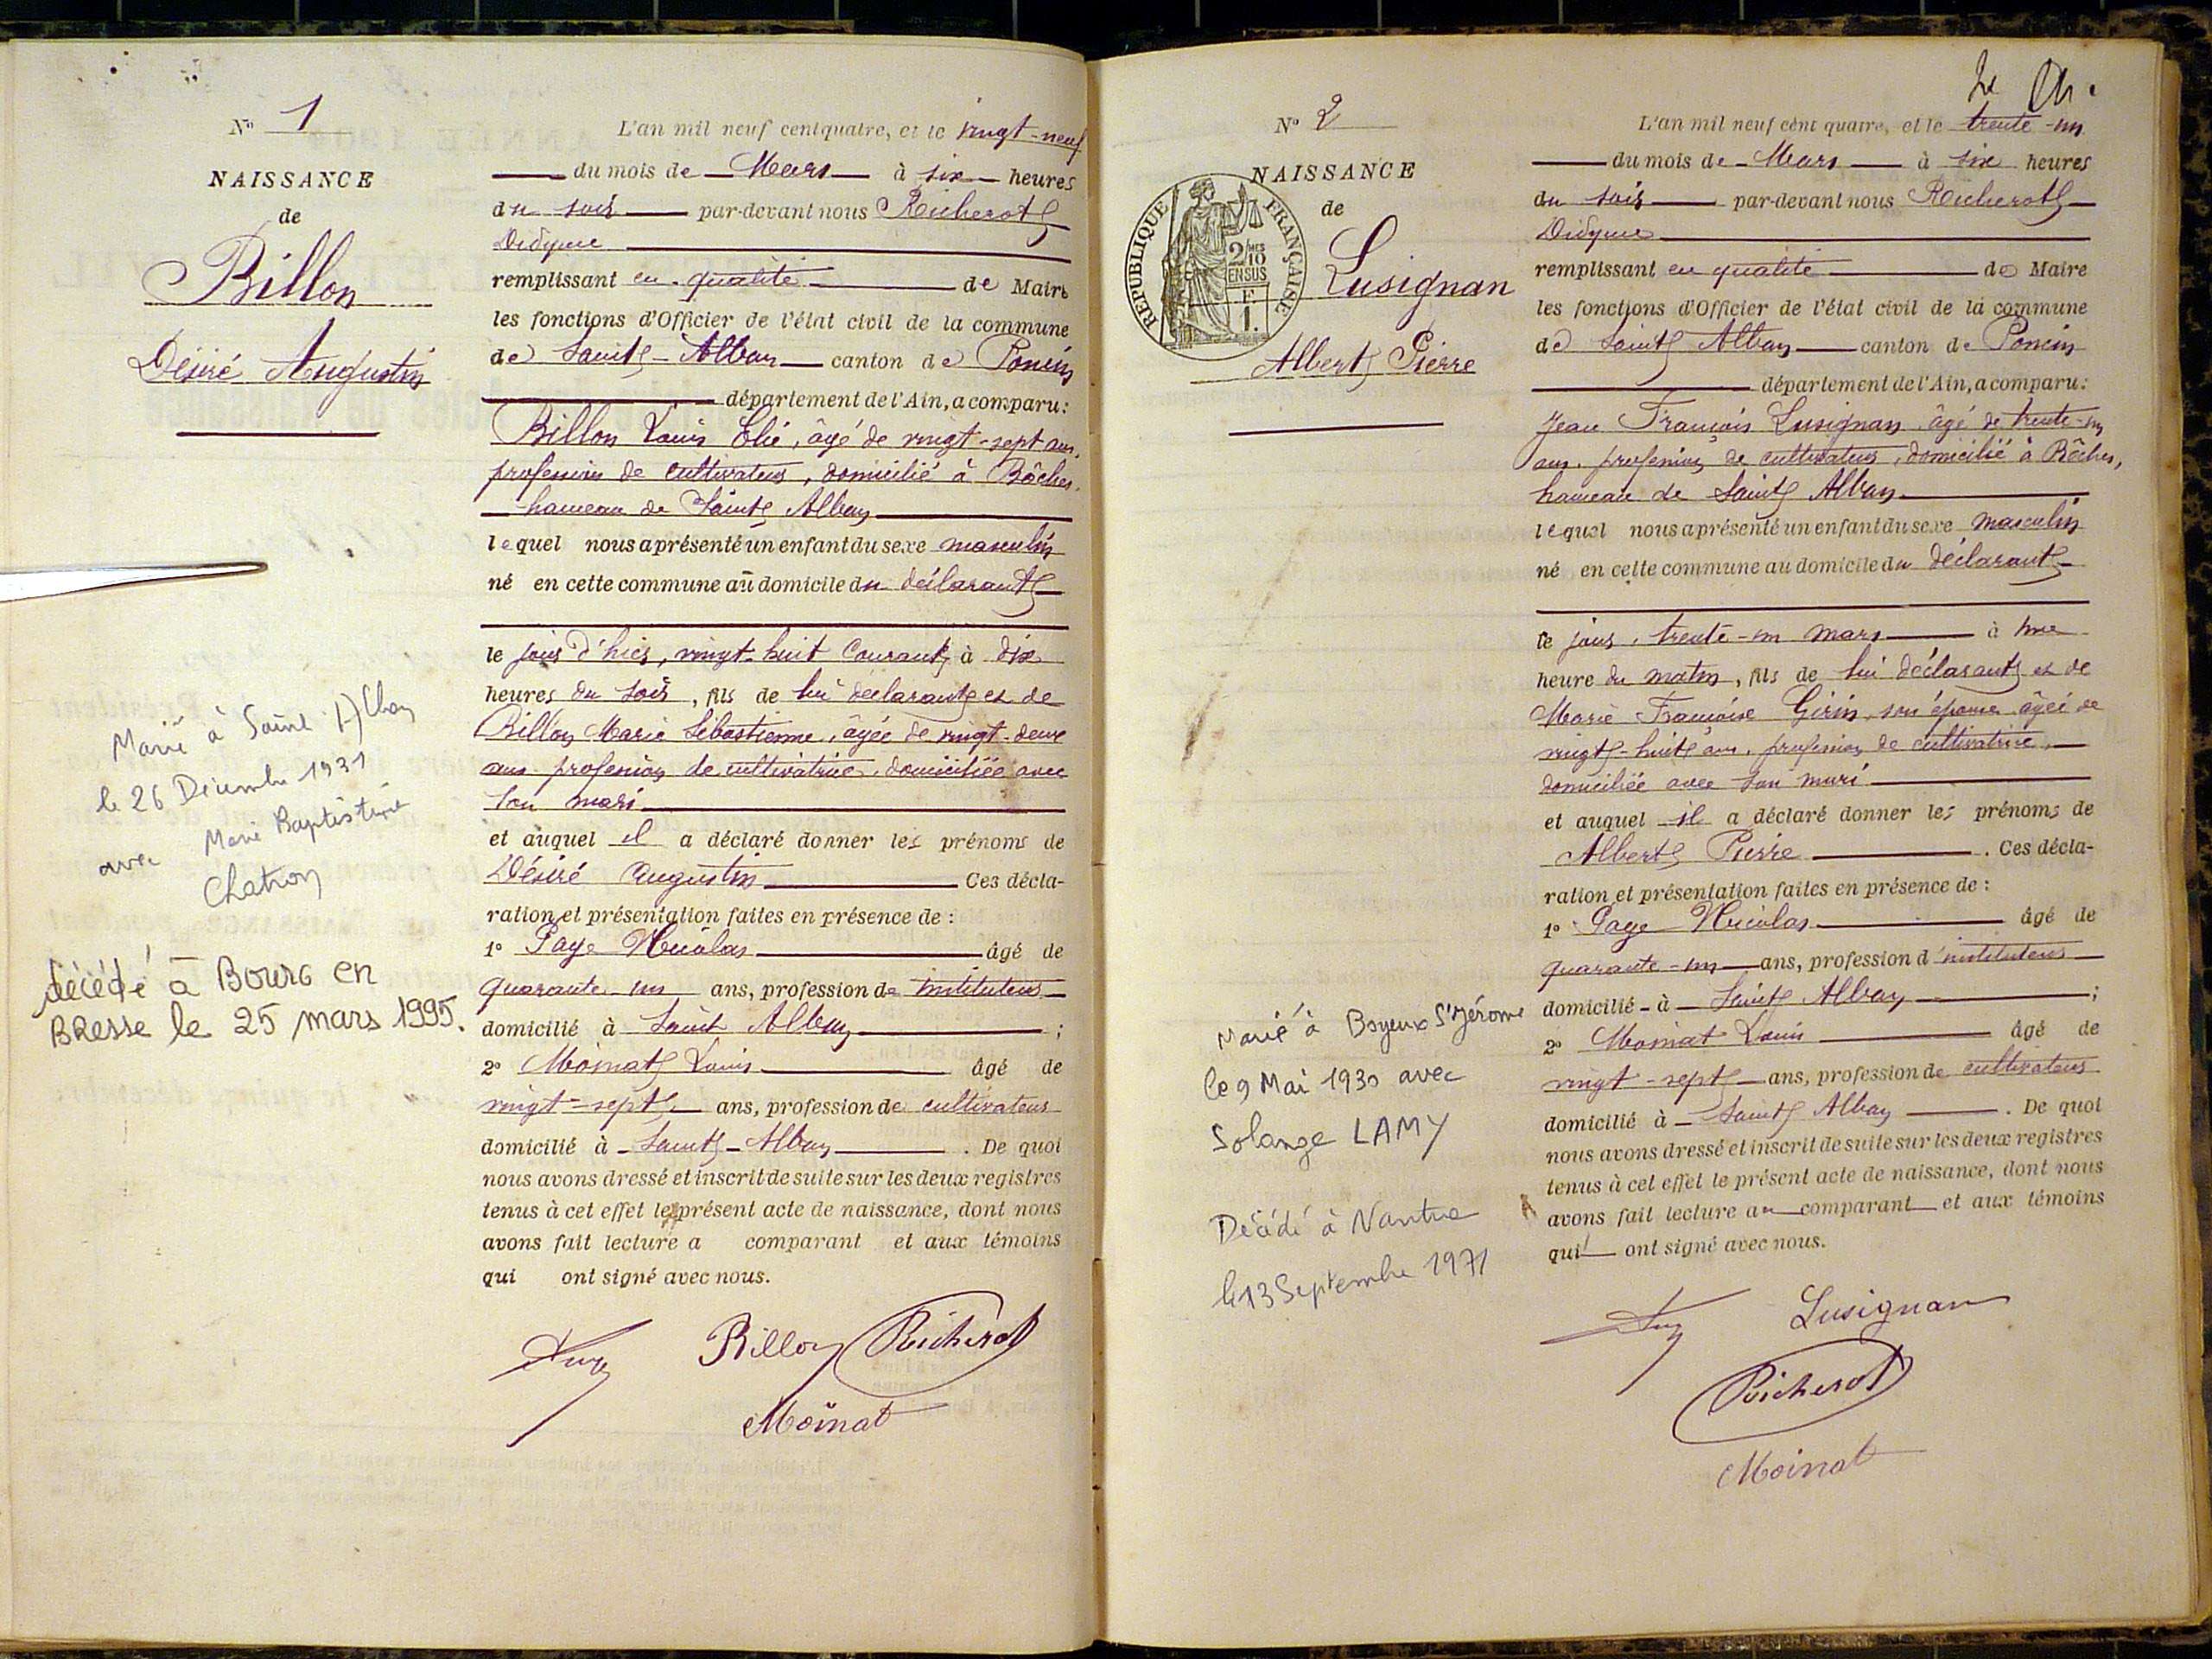 N° 1
NAISSANCE
de
Billon
Désiré Augustin
Marié à Saint Alban
le 26 Décembre 1931
avec Marie Baptistine
Chatron
décédé à Bourg en
Bresse le 25 mars 1995.
L'an mil neuf cent quatre, et le vingt-neuf
du mois de Mars à six heures
du soir par-devant nous Richerot
Didyme
remplissant en qualité de Maire
les fonctions d'Officier de l'état civil de la commune
de Saint-Alban canton de Poncin
département de l'Ain, a comparu:
Billon Louis Elie, âgé de vingt-sept ans,
profession de cultivateur, domicilié à Bôches,
hameau de Saint Alban
lequel nous a présenté un enfant du sexe masculin
né en cette commune au domicile du déclarant
le jour d'hier, vingt-huit courant, à dix
heures du soir, fils de lui déclarant et de
Billon Marie Sébastienne, âgée de vingt-deux
ans, profession de cultivatrice, domiciliée avec
son mari
et auquel il a déclaré donner les prénoms de
Désiré Augustin Ces décla-
ration et présentation faites en présence de :
1° Page Nicolas âgé de
quarante-un ans, profession de instituteur
domicilié à Saint Alban ;
2° Moinat Louis âgé de
vingt-sept ans, profession de cultivateur
domicilié à Saint-Alban . De quoi
nous avons dressé et inscrit de suite sur les deux registres
tenus à cet effet le présent acte de naissance, dont nous
avons fait lecture a comparant et aux témoins
qui ont signé avec nous.
Billon Richerot
Moinat
N° 2
NAISSANCE
de
RÉPUBLIQUE FRANÇAISE
2/10MES
EN SUS
F
1.
Lusignan
Albert Pierre
Marié à Boyeux St Jérome
le 9 Mai 1930 avec
Solange LAMY
Décédé à Nantua
le 13 Septembre 1971
L'an mil neuf cent quatre, et le trente-un
du mois de Mars à six heures
du soir par-devant nous Richerot
Didyme
remplissant en qualité de Maire
les fonctions d'Officier de l'état civil de la commune
de Saint Alban canton de Poncin
département de l'Ain, a comparu:
Jean François Lusignan, âgé de trente-un
ans, profession de cultivateur, domicilié à Bôches,
hameau de Saint Alban
lequel nous a présenté un enfant du sexe masculin
né en cette commune au domicile du déclarant
le jour, trente-un mars à une
heure du matin, fils de lui déclarant et de
Marie Françoise Girin, son épouse, âgée de
vingt-huit ans, profession de cultivatrice,
domiciliée avec son mari
et auquel il a déclaré donner les prénoms de
Albert Pierre . Ces décla-
ration et présentation faites en présence de :
1° Page Nicolas âgé de
quarante-un ans, profession d'instituteur
domicilié à Saint Alban ;
2° Moinat Louis âgé de
vingt-sept ans, profession de cultivateur
domicilié à Saint Alban . De quoi
nous avons dressé et inscrit de suite sur les deux registres
tenus à cet effet le présent acte de naissance, dont nous
avons fait lecture au comparant et aux témoins
qui ont signé avec nous.
Lusignan
Richerot
Moinat